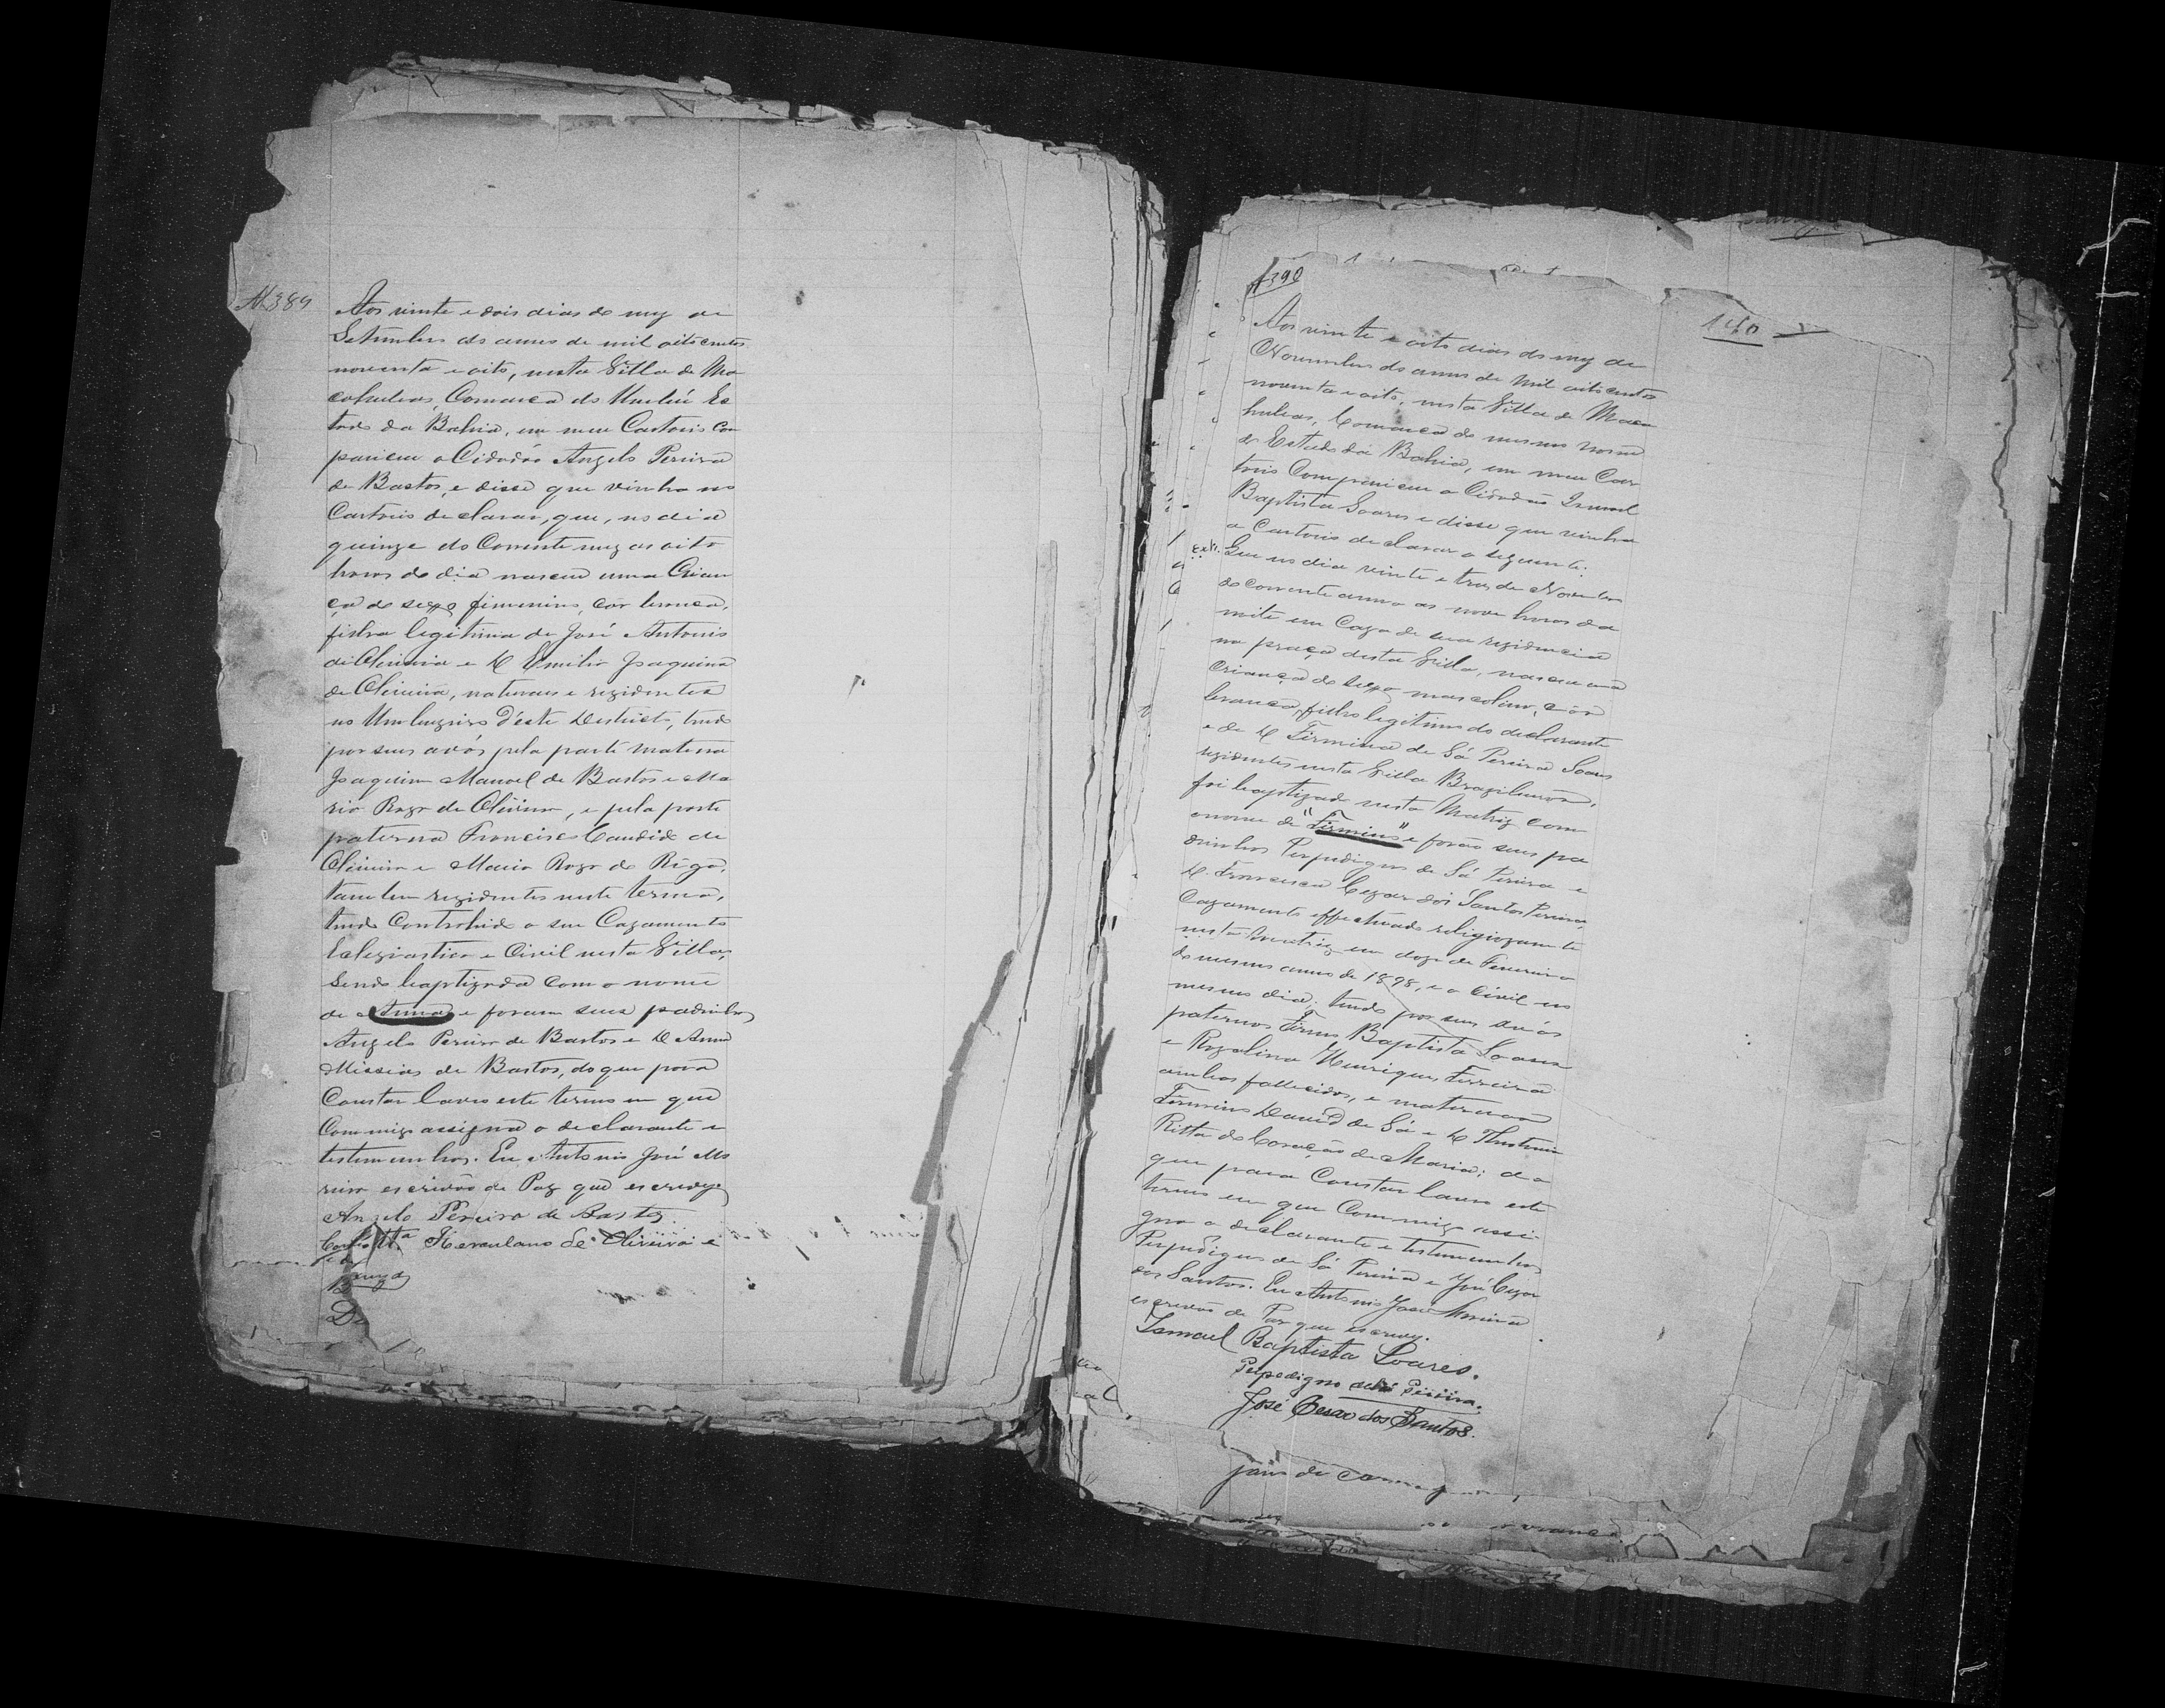 N 389
Aos vinte e dois dias do mez de
Setembro do anno de mil oitocentos
noventa e oito, nesta Villa de Ma
cahubas, Comarca do Urubú Es
tado da Bahia, em meu Cartorio Com
pareceu o Cidadão Angelo Pereira
de Bastos, e disse que vinha no
Cartorio declarar, que, no dia
quinze do Corrente mez as oito
horas do dia nasceu uma Crian
ça do sexo feminino, côr branca,
filha legitima de José Antonio
de Oliveira e D. Emilia Joaquina
de Oliveira, naturaes e rezidentes
no Umbuzeiro d'este Destricto, tendo
por seus avós pela parte materna
Joaquim Manoel de Bastos e Ma
ria Roza de Oliveira, e pela parte
paterna Francisco Candido de
Oliveira e Maria Roza do Rêgo,
tambem rezidentes neste termo,
tendo Contrahido o seu Cazamento
Eclegiastico e Civil nesta Villa,
sendo baptizada com o nome
de Anna e foram seus padrinhos
Angelo Pereira de Bastos e D. Anna
Messias de Bastos, do que para
Constar lavro este termo em que
Commigo assigna o declarante e
testemunhas. Eu Antonio José Mo
reira escrivão de Paz que escrevy
Angelo Pereira de Bastos.
Herculano de Oliveira e
390
140
Aos vinte e oito dias do mez de
Novembro do anno de mil oitocentos
noventa e oito, nesta Villa de Maca
hubas, Comarca do mesmo nome
do Estado da Bahia, em meu Car
torio Compareceu o Cidadão Ismael
Baptista Soares e disse que vinha
a Cartorio declarar o seguinte:
Que no dia vinte e tres de Novembro
do corrente anno as nove horas da
noite em Caza de sua rezidencia
na praça desta Villa, nasceu uma
Criança do sexo masculino, côr
branca, filho legitimo do declarante
e de D. Firmina de Sá Pereira Soares
rezidentes nesta Villa Brazileiros,
foi baptizado nesta Matriz com
o nome de "Firmino" e forão seus pa
drinhos Perpedigno de Sá Pereira e
D. Francisca Cezar dos Santos Pereira,
Cazamento effectuado religiozamente
nesta Matriz em doze de Fevereiro
do mesmo anno de 1898, e o Civil no
mesmo dia; tendo por seus avós
paternos Firmo Baptista Soares
e Rozalina Henriques Ferreira
ambos fallecidos, e maternos
Firmino David de Sá e D.
Ritta do Coração de Maria; do
que para Constar lavro este
termo em que Commigo assi-
gna o declarante e testemunhas
Perpedigno de Sá Pereira e José Cezar
dos Santos. Eu Antonio José Moreira
escrivão de Paz que escrevy.
Ismael Baptista Soares.
Perpedigno de Sá Pereira.
José Cesar dos Santos.